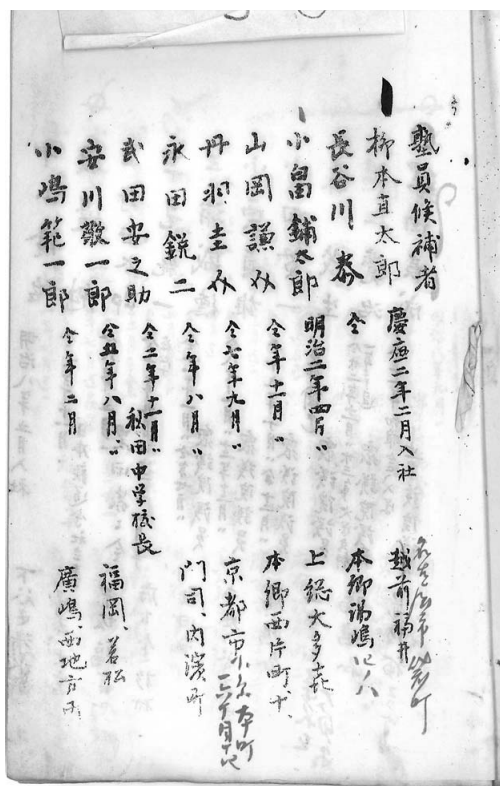 塾員候補者
柳本直太郎 慶應二年二月入社 越前福井
長谷川泰 仝 本郷湯嶋四ノ八
小畄輔太郎 明治二年四月〃 上総大多喜
山岡謙介 仝年十一月〃 本郷西片町十、
丹羽圭介 仝七年九月〃 京都市
永田鋭二 仝年八月〃 門司、内濱町
武田安之助 仝二年十一月〃 秋田中学校長
安川敬一郎 仝五年八月〃 福岡、若松
小嶋範一郎 仝年二月 廣嶋、西地方町